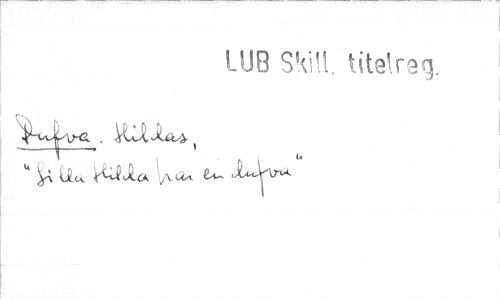 LUB Skill. titelreg.
Dufva. Hildas,
"Lilla Hilda har en dufva"